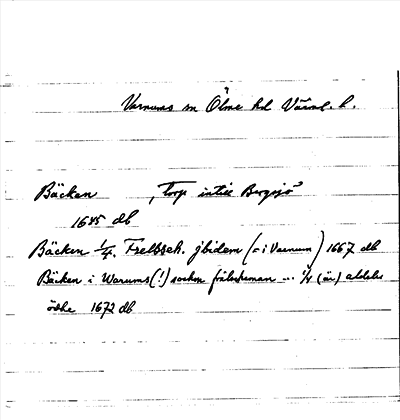 Varnums sn Ölme hd Värml. l.
Bäcken „Torp intill Bergsjö"
1645 db
Bäcken 1/4. Frelsseh. jbidem (= i Varnum) 1667 db
Bäcken i Warums(!) socken frälseheman ... 1/4 (är) aldeles
ödhe 1672 db